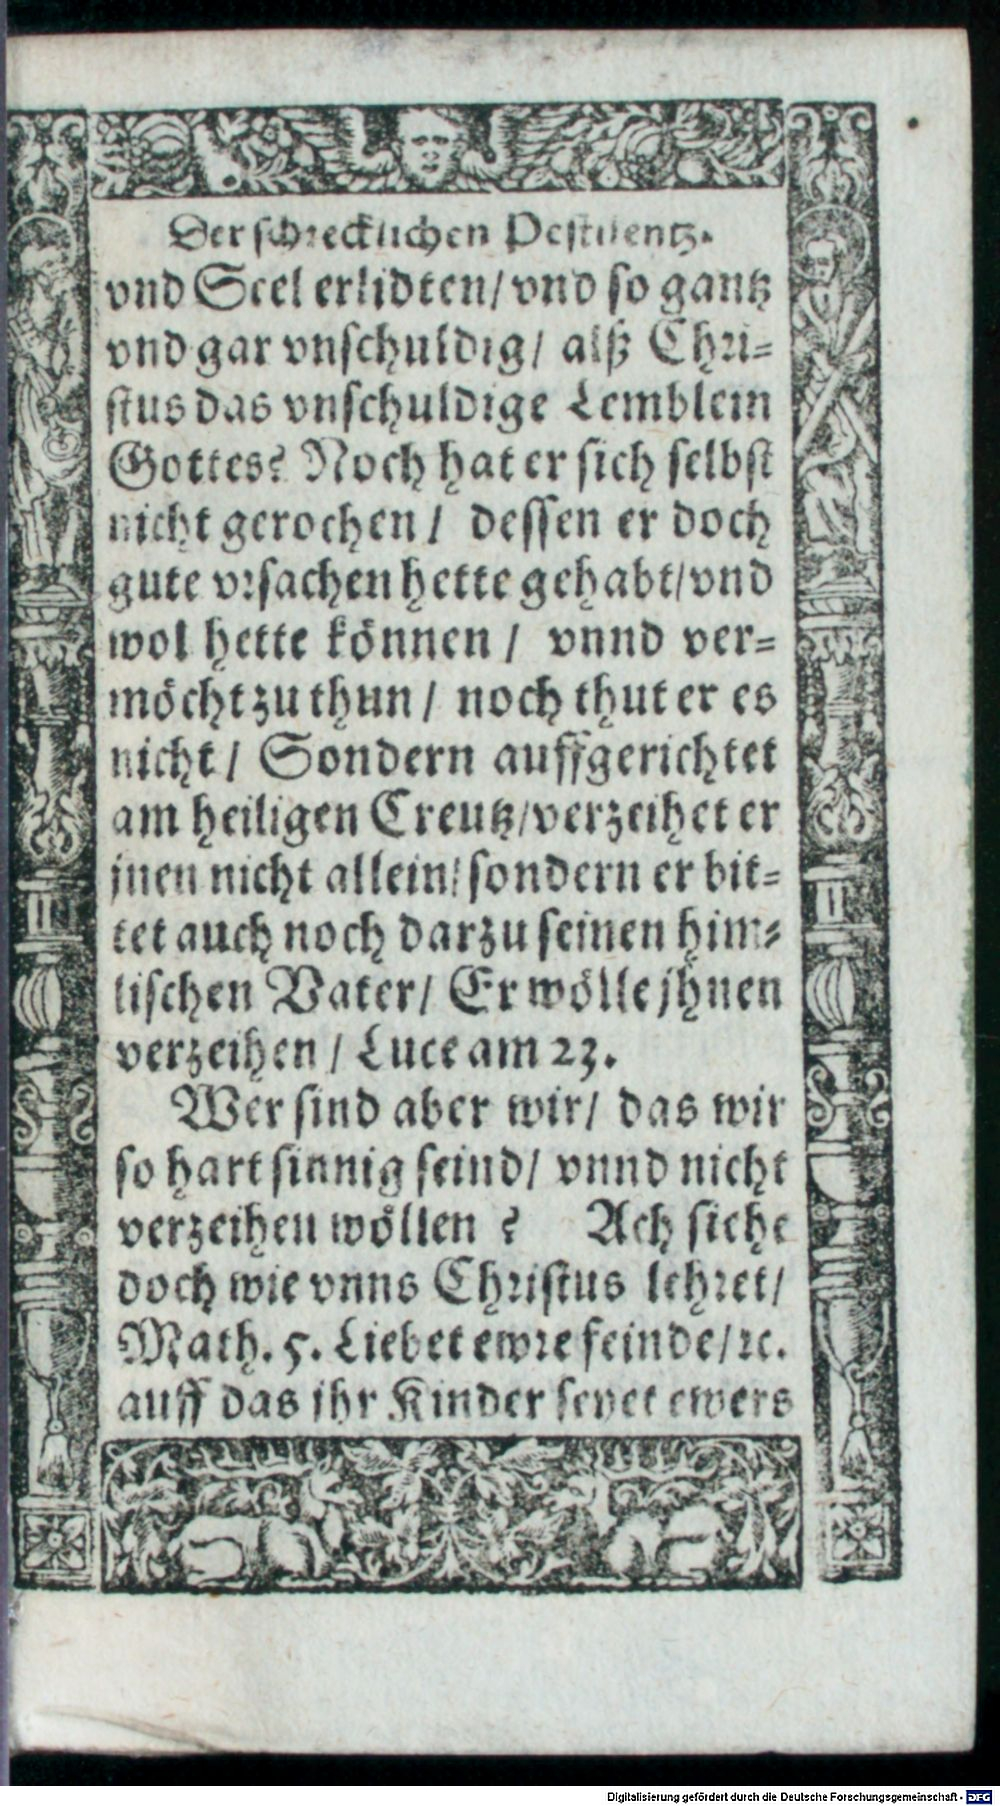 Der schrecklichen Pestilentz.
vnd Seel erlidten/ vnd so gantz
vnd gar vnschuldig/ alß Chri-
stus das vnschuldige Lemblein
Gottes? Noch hat er sich selbst
nicht gerochen/ dessen er doch
gute vrsachen hette gehabt/ vnd
wol hette können/ vnnd ver-
möcht zu thun/ noch thut er es
nicht/ Sondern auffgerichtet
am heiligen Creutz/ verzeihet er
jnen nicht allein/ sondern er bit-
tet auch noch darzu seinen him-
lischen Vater/ Er wölle jhnen
verzeihen/ Luce am 23.
Wer sind aber wir/ das wir
so hart sinnig seind/ vnnd nicht
verzeihen wöllen? Ach siehe
doch wie vnns Christus lehret/
Math. 5. Liebet ewre feinde/ ꝛc.
auff das jhr Kinder seyet ewers
Digitalisierung gefördert durch die Deutsche Forschungsgemeinschaft - DFG